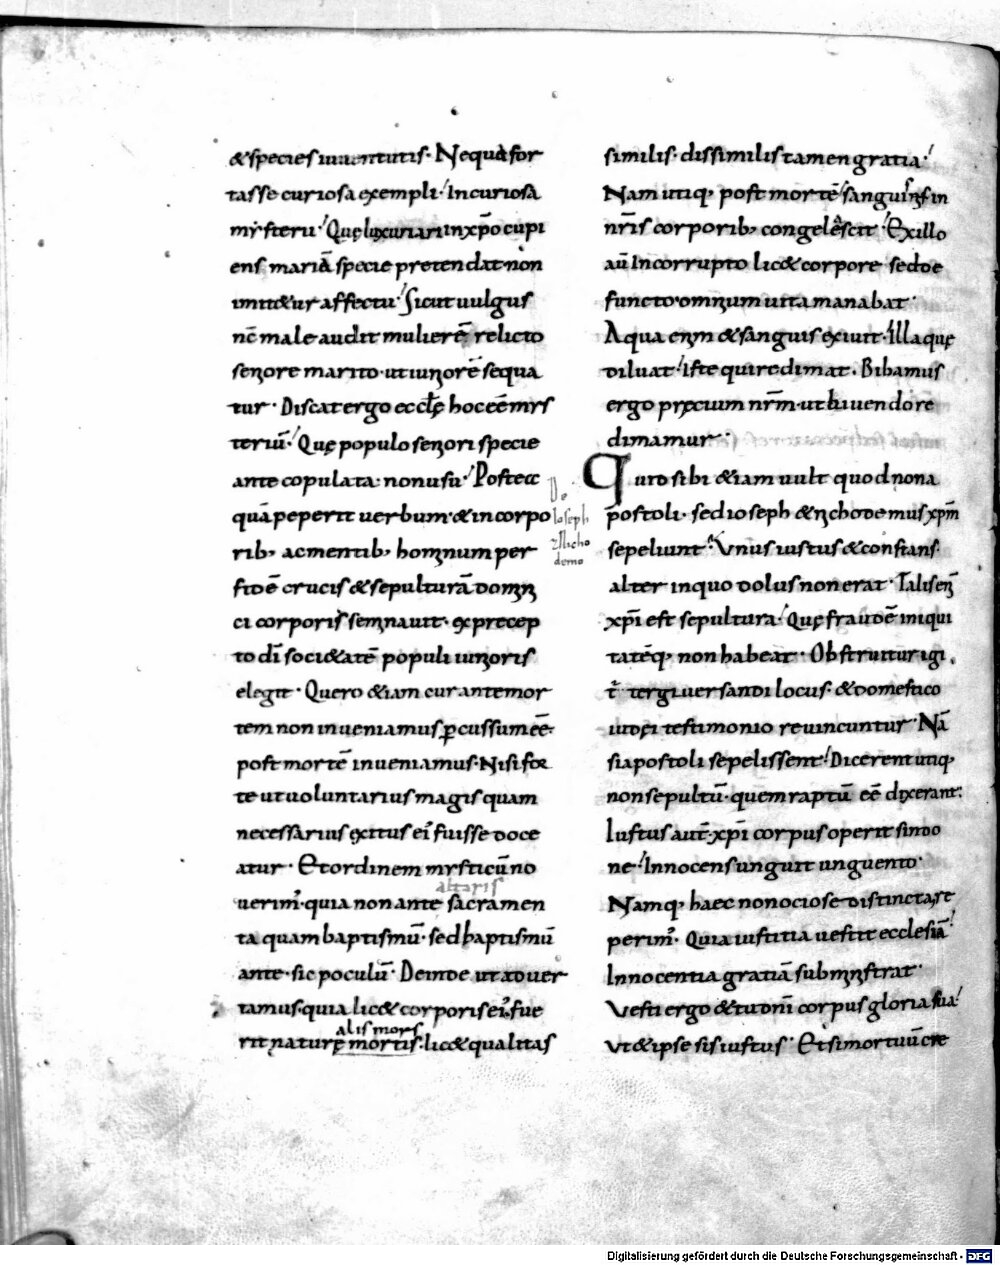 & species iuuentutis· Nequa for
tasse curiosa exempli· Incuriosa
mysterii· Quę luxuriari in xp̄o cupi
ens mariā specie pretendat non
imit&ur affectu· Sicut uulgus
nc̄ male audit mulierē relicto
seniore marito· ut iuniorē sequa
tur· Discat ergo eccłę hoc eē mys
teriū· Quę populo seniori specie
ante copulata· non usu· Postea
quā peperit uerbum· & in corpo
rib; ac mentib; hominum per
fidē crucis & sepulturā domini
ci corporis seminauit· ex precep
to dī soci&atē populi iunioris
elegit· Quero &iam cur ante mor
tem non inueniamus p̄cussum eē·
post mortē inueniamus· Nisi for
te ut uoluntarius magis quam
necessarius exitus eī fuisse doce
atur· Et ordinem mysticū no
altaris
uerim̄· quia non ante sacramen
ta quam baptismū· sed baptismū
ante· sic poculū· Deinde ut aduer
tamus· quia lic& corporis eī fue
alis mors
rit naturę mortis· lic& qualitas
De
Ioseph
& Nicho
demo
similis· dissimilis tamen gratia·
Nam utiq; post mortē sanguis in
nr̄is corporib; congelescit· Ex illo
aū Incorrupto lic& corpore· sed de
functo· omnium uita manabat·
Aqua enim & sanguis exiuit· Illa quę
diluat· iste qui redimat· Bibamus
ergo precium nr̄m· ut biuendo re
dimamur·
Quid sibi &iam uult quod non a
postoli· sed ioseph & nichodemus xp̄m
sepeliunt· Vnus iustus & constans·
alter in quo dolus non erat· Talis enī
xp̄i est sepultura· Quę fraudē iniqui
tatēq; non habeat· Obstruitur igi
t̄ tergiuersandi locus· & domestico
iudęi testimonio reuincuntur· Nā
si apostoli sepelissent· Dicerent utiq;
non sepultū· quem raptū eē dixerant·
Iustus aut̄· xp̄i corpus operit sindo
ne· Innocens unguit unguento·
Namq; haec non ociose distincta re
perim̄· Quia iustitia uestit ecclesiā
Innocentia gratiā subministrat·
Vesti ergo & tu dn̄i corpus gloria sua·
Vt & ipse sis iustus· Et si mortuū cre
Digitalisierung gefördert durch die Deutsche Forschungsgemeinschaft · DFG